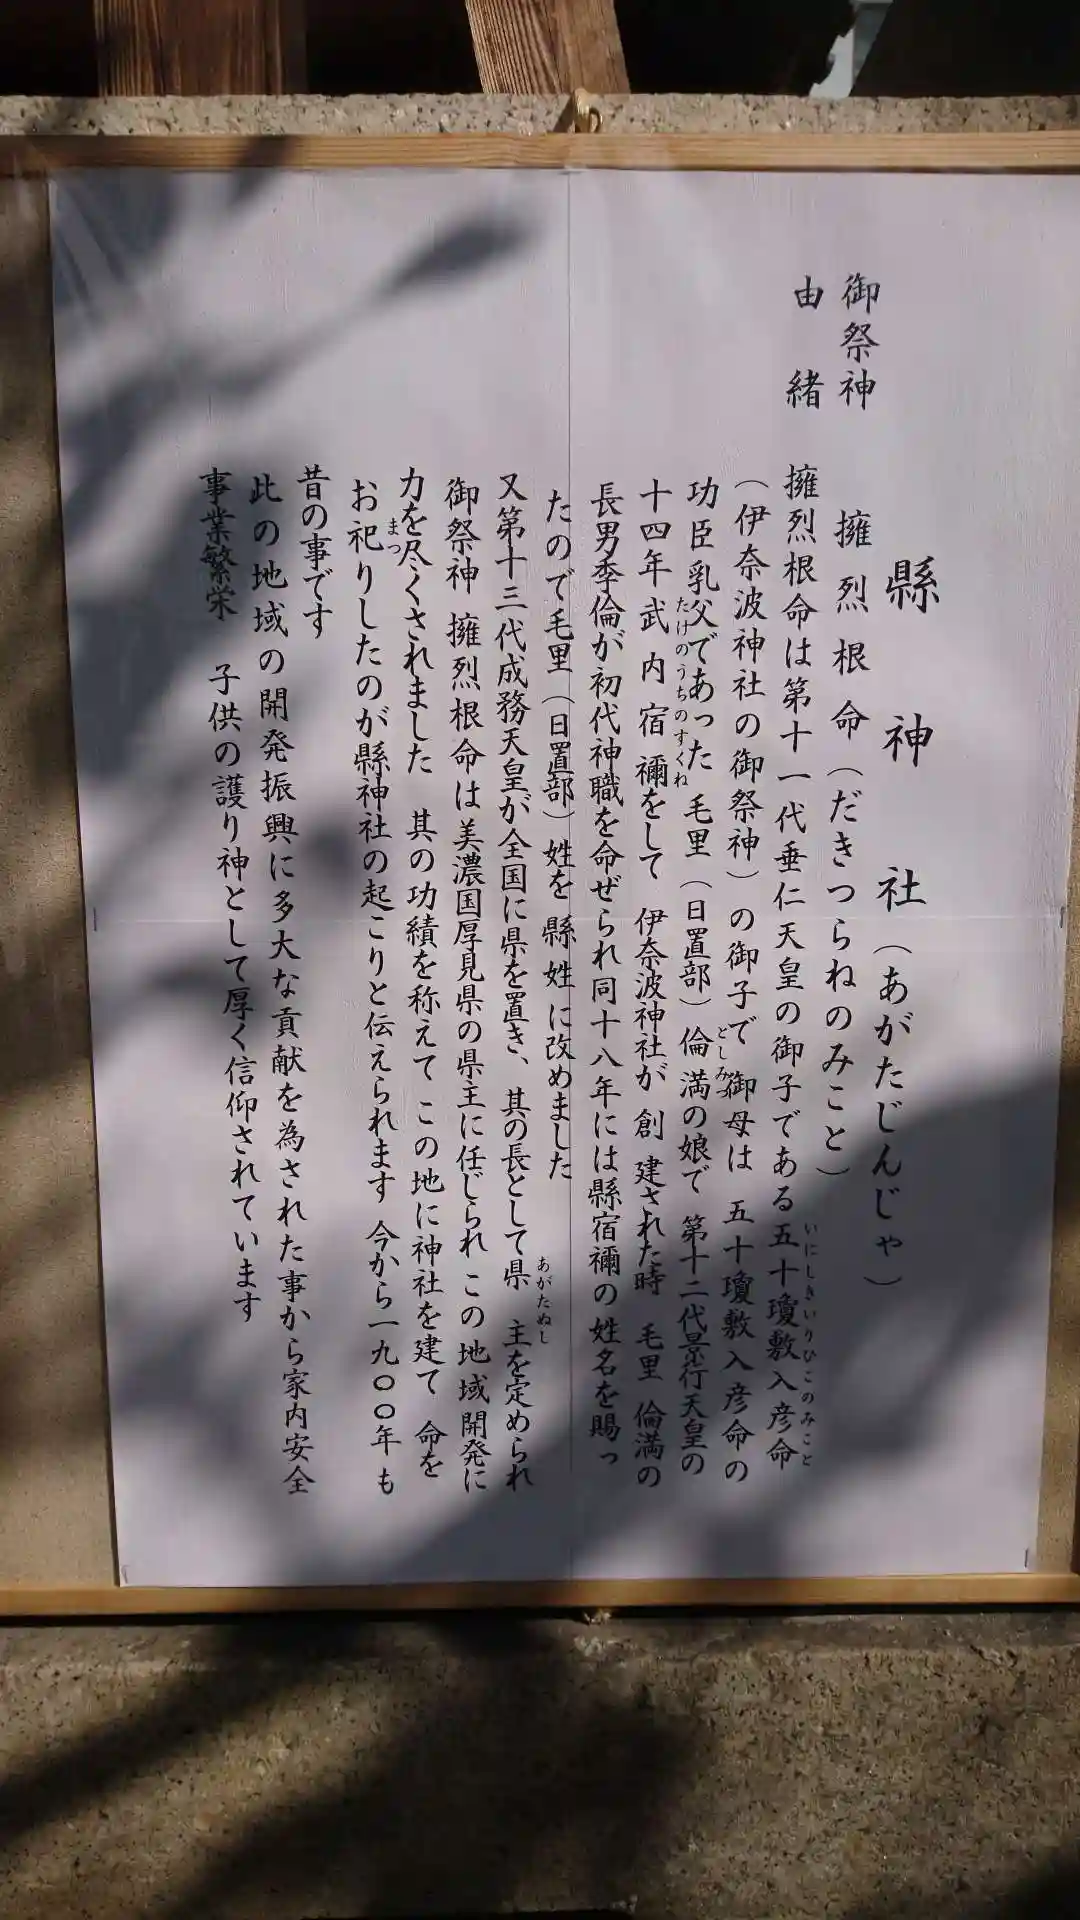 縣神社（あがたじんじゃ）
御祭神 擁烈根命（だきつらねのみこと）
由緒 擁烈根命は第十一代垂仁天皇の御子である五十瓊敷入彦命
いにしきいりひこのみこと
（伊奈波神社の御祭神）の御子で 御母は 五十瓊敷入彦命の
功臣乳父であった 毛里（日置部）倫満の娘で 第十二代景行天皇の
としみつ
十四年武内宿禰をして 伊奈波神社が 創建された時 毛里 倫満の
たけのうちのすくね
長男季倫が初代神職を命ぜられ同十八年には縣宿禰の姓名を賜っ
たので毛里（日置部）姓を 縣姓に改めました
又第十三代成務天皇が全国に県を置き、其の長として県主を定められ
あがたぬし
御祭神 擁烈根命は美濃国厚見県の県主に任じられ この地域開発に
力を尽くされました 其の功績を称えて この地に神社を建て 命を
お祀りしたのが縣神社の起こりと伝えられます 今から一九〇〇年も
まつ
昔の事です
此の地域の開発振興に多大な貢献を為された事から家内安全
事業繁栄 子供の護り神として厚く信仰されています